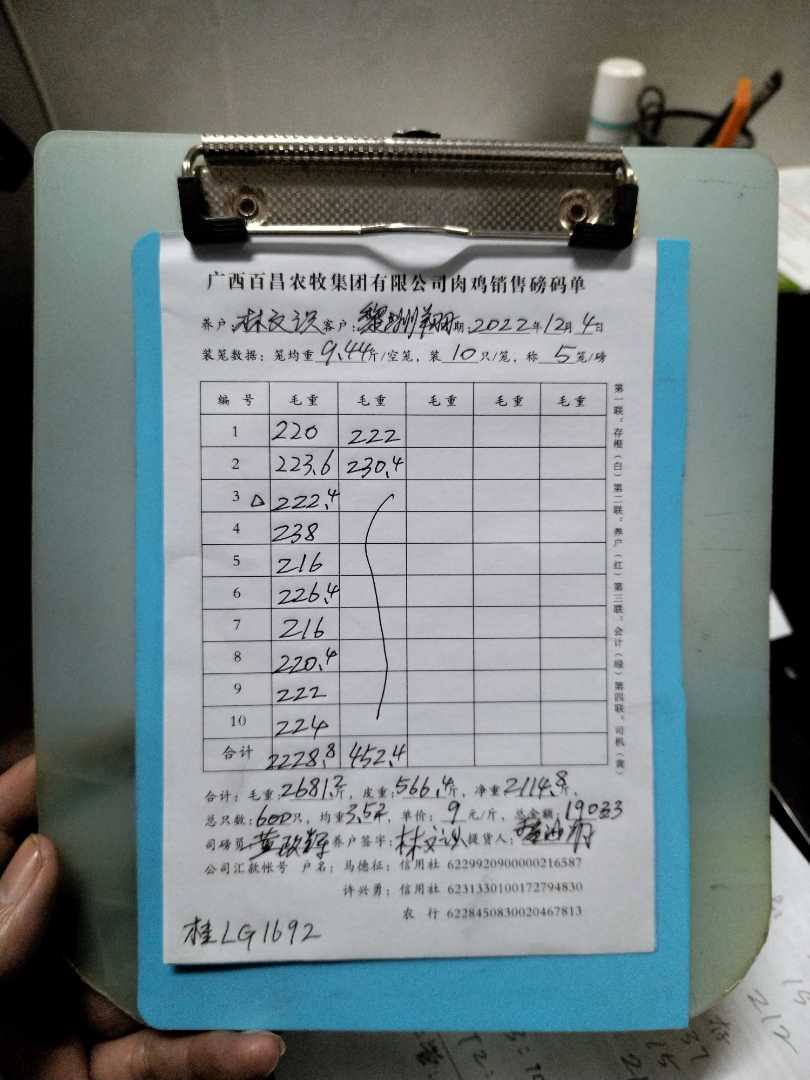 广西百昌农牧集团有限公司肉鸡销售磅码单
养户:林文识 客户:黎洲翔 日期:2022年12月4日
装笼数据:笼均重9.44斤/空笼,装10只/笼,称5笼/磅
编号 毛重 毛重 毛重 毛重 毛重
1 220 222
2 223.6 230.4
3 △ 222.4
4 238
5 216
6 226.4
7 216
8 220.4
9 222
10 224
合计 2228.8 452.4
第一联:存根(白)第二联:养户(红)第三联:会计(绿)第四联:司机(黄)
合计:毛重:2681.2斤,皮重:566.4斤,净重2114.8斤,
总只数:600只,均重3.52,单价:9元/斤,总金额:19033
司磅员: 养户签字:林文识 提货人:
公司汇款帐号 户名:马德征:信用社 6229920900000216587
许兴勇:信用社 6231330100172794830
农 行 6228450830020467813
桂LG1692